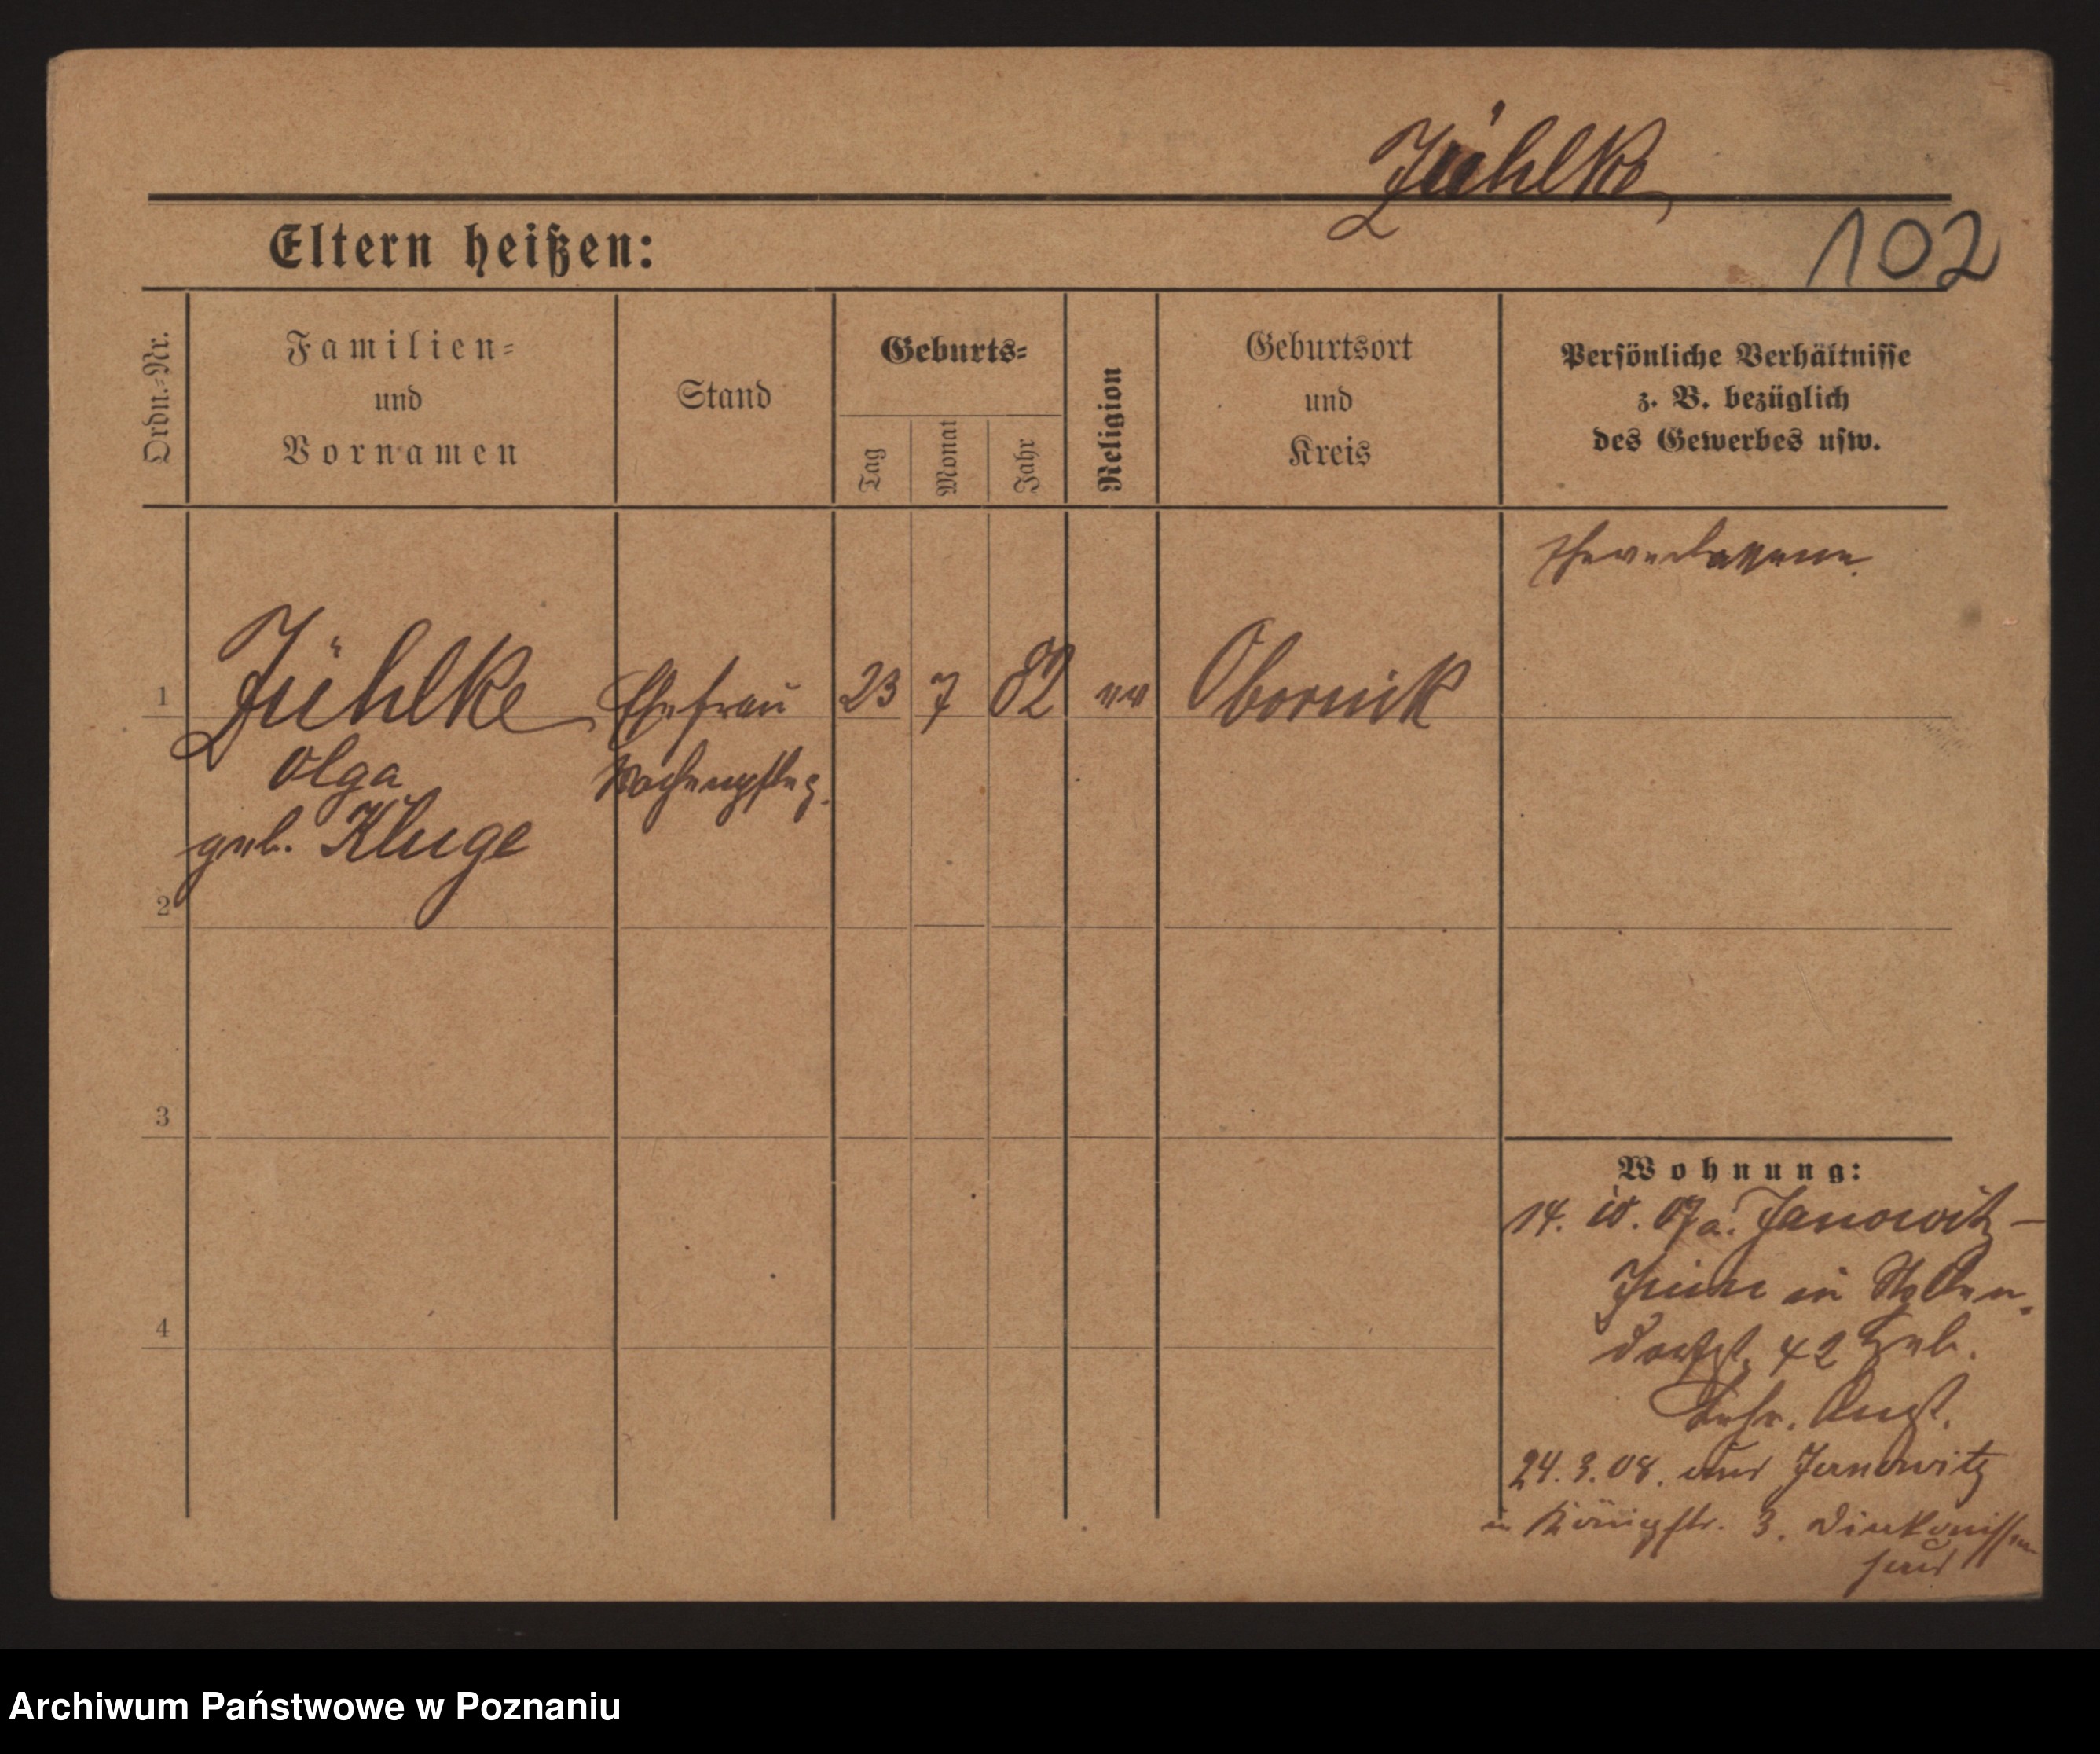 Jühlke
102
Eltern heißen:
Ordn.-Nr.
Familien-
und
Vornamen
Stand
Geburts-
Tag
Monat
Jahr
Religion
Geburtsort
und
Kreis
Persönliche Verhältnisse
z. B. bezüglich
des Gewerbes usw.
1
Jühlke
Ehefrau
23
7
82
ev
Obornik
Olga
Wochenpfleg.
geb. Kluge
2
3
4
Wohnung:
14. 10. 07 a. Janowitz -
in
42
24. 3. 08. aus Janowitz
in Königstr. 3. Diakonissen
haus
Archiwum Państwowe w Poznaniu